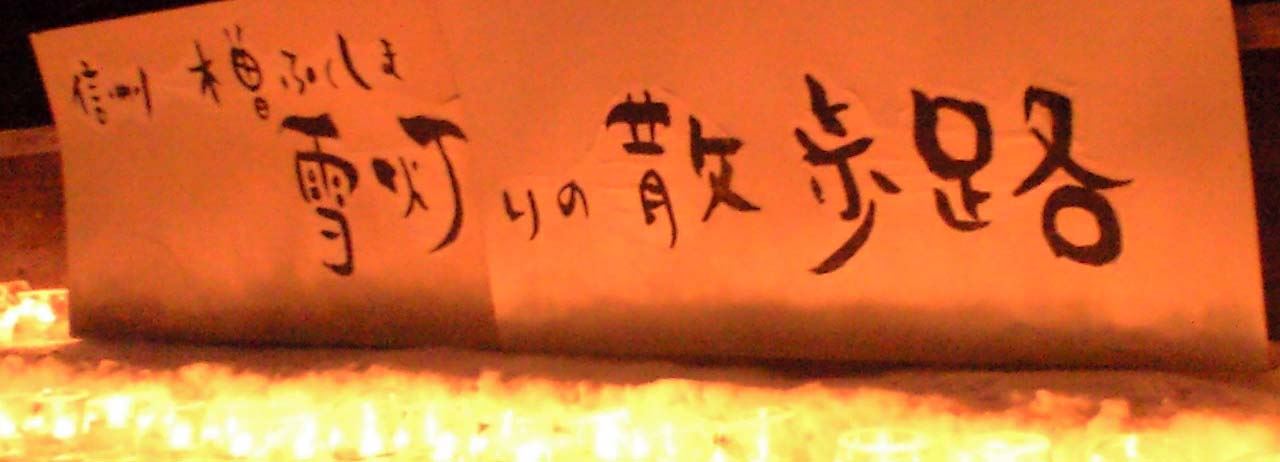 信州 木曽ふくしま
雪灯りの散歩路